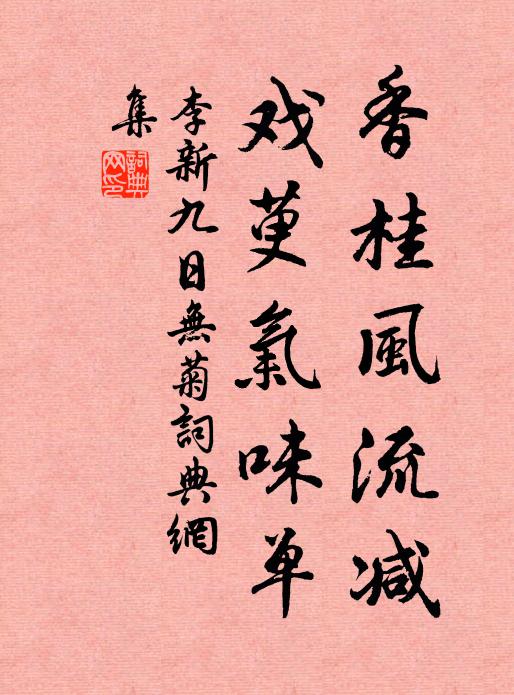 香桂風流减
戏萸氣味单
李新九日無菊詞典網
集
詞典
网印